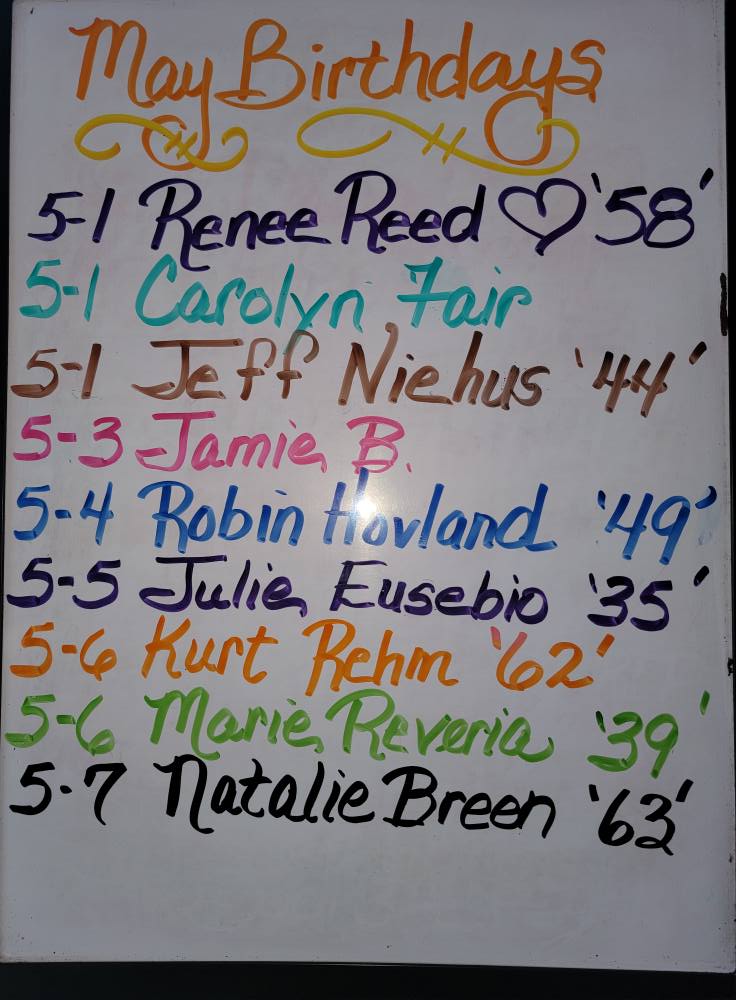 May Birthdays
5-1 Renee Reed ♡ '58'
5-1 Carolyn Fair
5-1 Jeff Niehus '44'
5-3 Jamie B.
5-4 Robin Hovland '49'
5-5 Julie Eusebio '35'
5-6 Kurt Rehm '62'
5-6 Marie Reveria '39'
5-7 Natalie Breen '63'